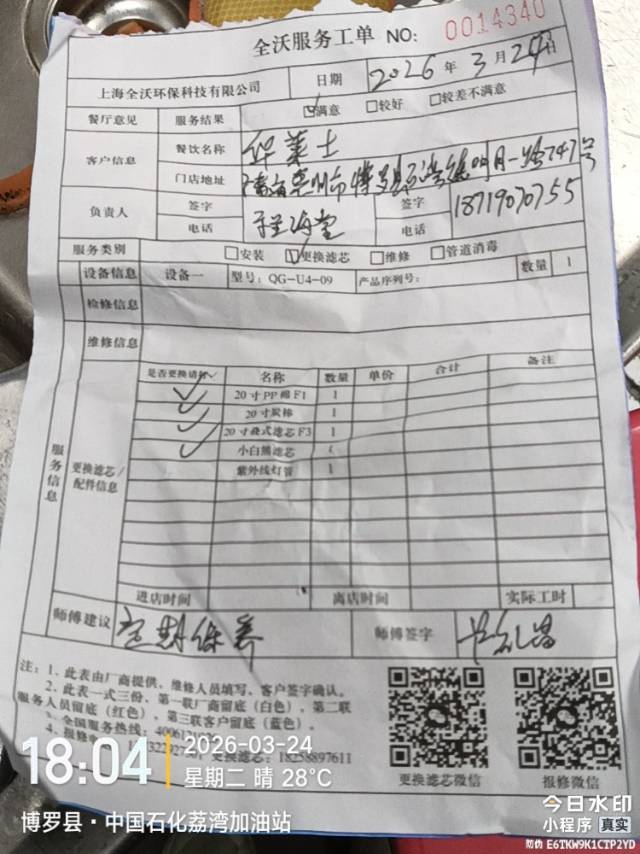 全沃服务工单 NO: 0014340
上海全沃环保科技有限公司 日期 2026年3月24日
餐厅意见 服务结果 ☑满意 □较好 □较差不满意
客户信息 餐饮名称 华莱士
门店地址 惠州市博罗县 明月一路747号
负责人 签字 签字
电话 程海堂 电话 18719070755
服务类别 □安装 ☑更换滤芯 □维修 □管道消毒
设备信息 设备一 型号: QG-U4-09 产品序列号: 数量 1
检修信息
维修信息
服务信息
更换滤芯/配件信息
是否更换请打✓ 名称 数量 单价 合计 备注
✓ 20寸PP棉F1 1
✓ 20寸炭棒 1
✓ 20寸叠式滤芯F3 1
✓ 小白熊滤芯 1
紫外线灯管 1
进店时间 离店时间 实际工时
师傅建议 定期保养 师傅签字
注: 1、此表由厂商提供、维修人员填写、客户签字确认。
2、此表一式三份、第一联厂商留底(白色)、第二联
服务人员留底(红色)、第三联客户留底(蓝色)。
3、全国服务热线: 4006121
4、报修 18258897611
更换滤芯微信 报修微信
18:04 2026-03-24
星期二 晴 28°C
博罗县·中国石化荔湾加油站
今日水印
小程序 真实
防伪 E6TKW9K1CTP2YD